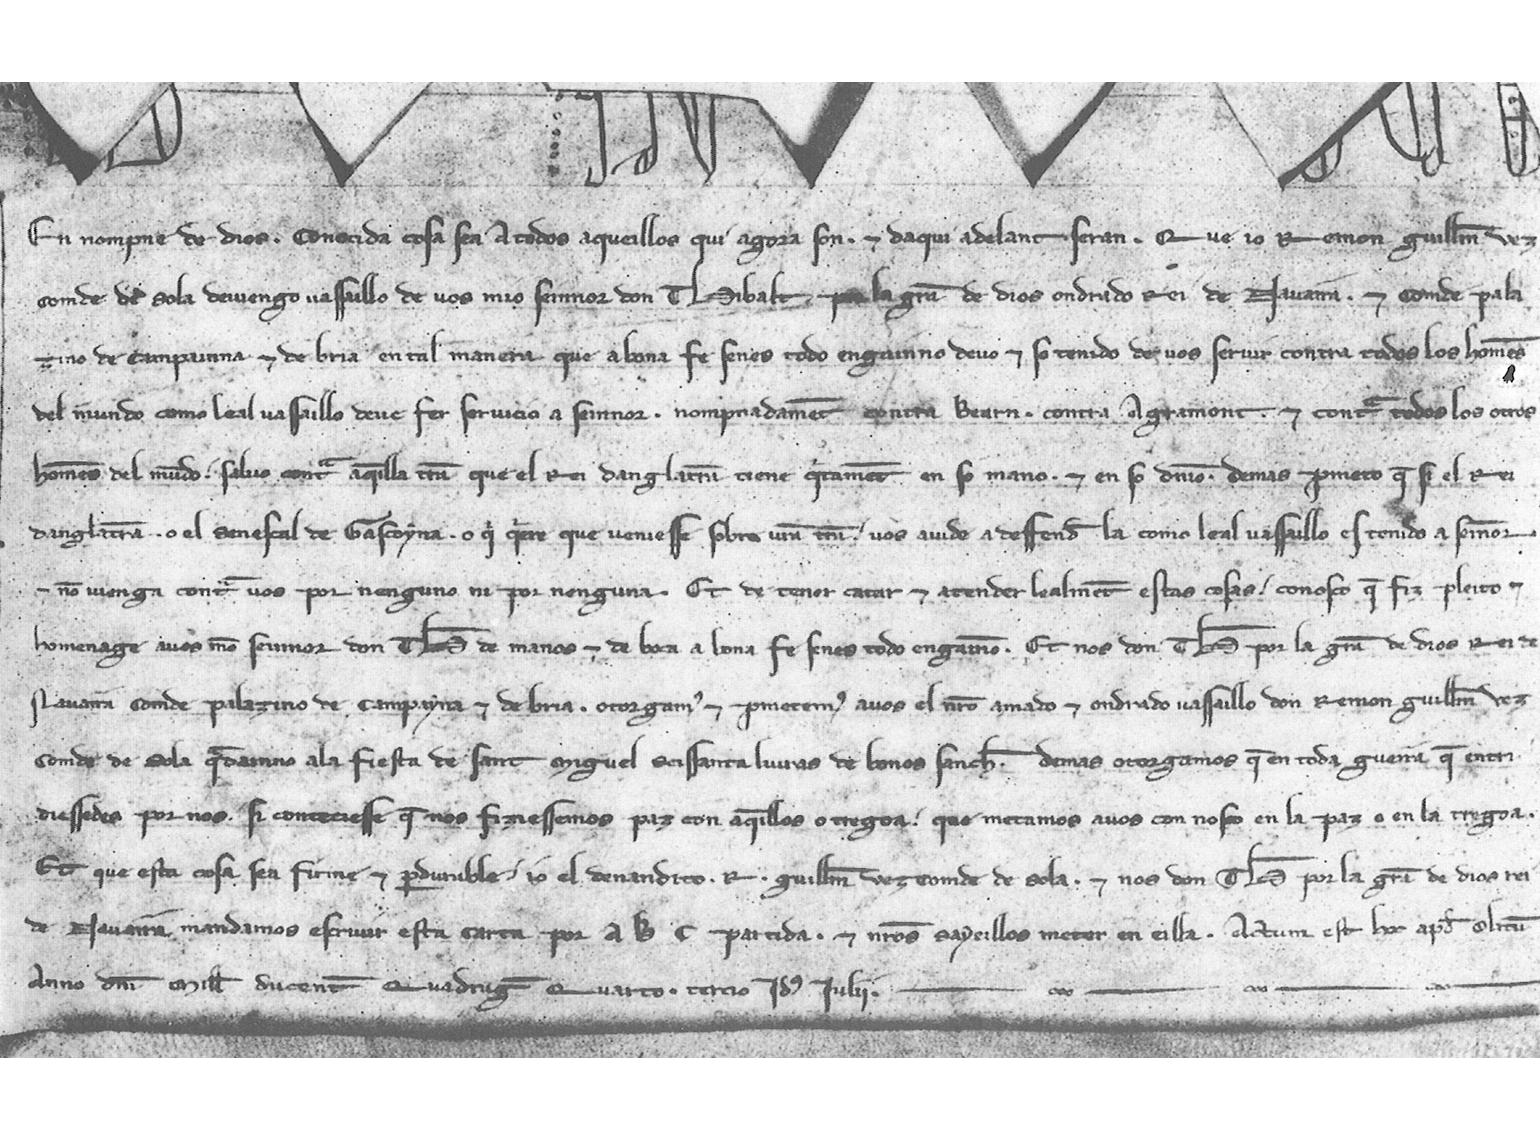 En nompne de dios. Conocida cosa sea A todos aqueillos qui agora son. ⁊ daqui adelant seran. Que io Remon guillm̅ vez
comde de sola devengo vassaillo de vos mio seinnor don Thibalt por la gr̅a de dios ondrado Rei de Nauarra. ⁊ Comde pala
zino de Campainna ⁊ de bria en tal manera que a bona fe senes todo engainno devo ⁊ so tenido de vos servir contra todos los hom̅es
del mundo como leal vassaillo deve fer servicio a seinnor. nompnadamēt contra Bearn. contra Agramont. ⁊ contͣ todos los otros
hom̅es del mūdo. salvo contͣ aq̅illa tr̅ra que el Rei danglatr̅ra tiene q̇tamēt en so mano. ⁊ en so dm̅io. demas ꝓmeto q̅ si el Rei
danglatr̅ra. o el Senescal de Gascoyna. o qͥ qͥere que veniesse sobre vr̅a tr̅ra. vos aiude a deffend̕ la como leal vassaillo es tenido a seīnor.
⁊ nō vienga contͣ vos por nenguno ni por nenguna. Et de tener catar ⁊ atender lealmēt estas cosas. conosco q̅ fiz pleito ⁊
homenage a vos mō seinnor don Th̅s de manos ⁊ de boca a bona fe senes todo engaīno. Et nos don Th̅s por la gr̅a de dios Rei de
Nauarra Comde palazino de Campayna ⁊ de bria. otorgamꝰ ⁊ ꝓmetemꝰ a vos el nr̅o amado ⁊ ondrado vassaillo don Remon guillm̅ vez
Comde de Sola q̅dainno a la fiesta de sant Miguel Seissanta liuras de bonos sanch̅. demas otorgamos q̅ en toda guerra q̅ entri
diessedes por nos. si conteciesse q̅ nos fiziessemos paz con aq̅illos o tregoa. que metamos a vos con nosco en la paz o en la tregoa.
Et que esta cosa sea firme ⁊ ꝑdurable. io el devandito. R. guillm̅ vez comde de sola. ⁊ nos don Th̅s por la gr̅a de dios rei
de Nauarra mandamos escrivir esta carta por A B C partida. ⁊ nr̅os sayeillos meter en eilla. Actum est hoc apd̕ Olitū
Anno dn̅i Mill̅ ducent̅ Quadrag̅ Quarto. tercio Idꝰ Julii.